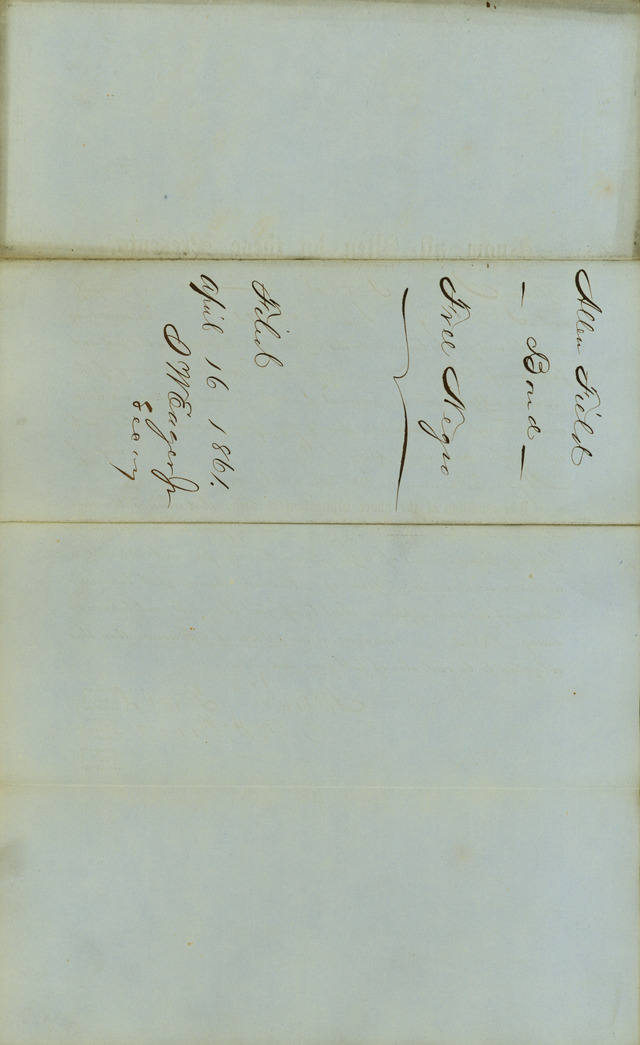 Allen Field
— Bond —
Free Negro
Filed
April 16 1861.
D W Eager Jr